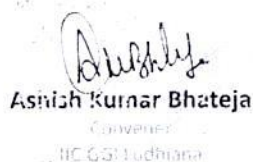 Ashish Kumar Bhateja
Convener
IIC GGI Ludhiana